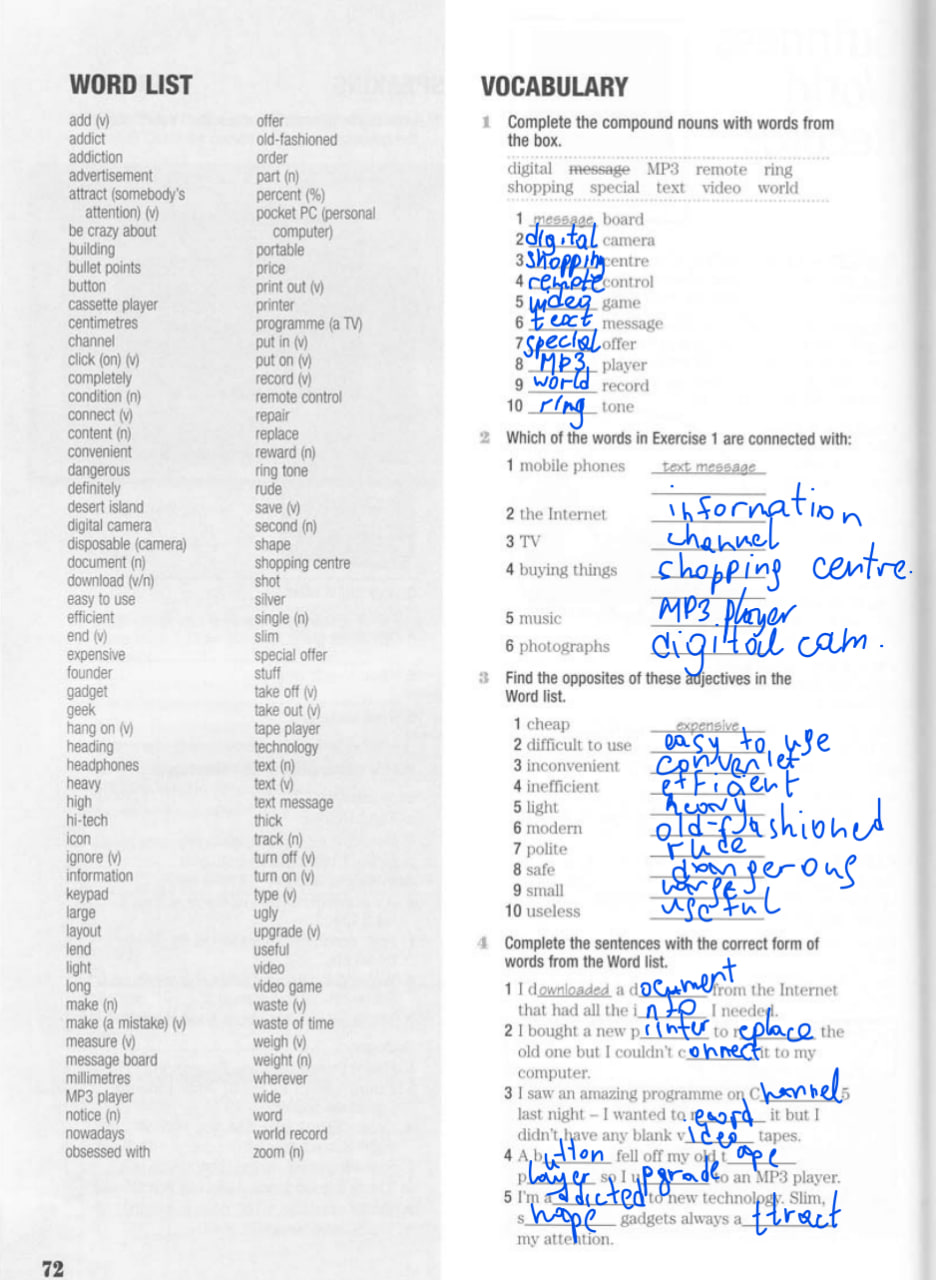 WORD LIST
add (v)
addict
addiction
advertisement
attract (somebody's
attention) (v)
be crazy about
building
bullet points
button
cassette player
centimetres
channel
click (on) (v)
completely
condition (n)
connect (v)
content (n)
convenient
dangerous
definitely
desert island
digital camera
disposable (camera)
document (n)
download (v/n)
easy to use
efficient
end (v)
expensive
founder
gadget
geek
hang on (v)
heading
headphones
heavy
high
hi-tech
icon
ignore (v)
information
keypad
large
layout
lend
light
long
make (n)
make (a mistake) (v)
measure (v)
message board
millimetres
MP3 player
notice (n)
nowadays
obsessed with
offer
old-fashioned
order
part (n)
percent (%)
pocket PC (personal
computer)
portable
price
print out (v)
printer
programme (a TV)
put in (v)
put on (v)
record (v)
remote control
repair
replace
reward (n)
ring tone
rude
save (v)
second (n)
shape
shopping centre
shot
silver
single (n)
slim
special offer
stuff
take off (v)
take out (v)
tape player
technology
text (n)
text (v)
text message
thick
track (n)
turn off (v)
turn on (v)
type (v)
ugly
upgrade (v)
useful
video
video game
waste (v)
waste of time
weigh (v)
weight (n)
wherever
wide
word
world record
zoom (n)
72
VOCABULARY
1 Complete the compound nouns with words from
the box.
digital message MP3 remote ring
shopping special text video world
1 message board
2 digital camera
3 shopping centre
4 remote control
5 video game
6 text message
7 special offer
8 MP3 player
9 world record
10 ring tone
2 Which of the words in Exercise 1 are connected with:
1 mobile phones text message
2 the Internet information
3 TV channel
4 buying things shopping centre.
5 music MP3 player
6 photographs digital cam.
3 Find the opposites of these adjectives in the
Word list.
1 cheap expensive
2 difficult to use easy to use
3 inconvenient
4 inefficient efficient
5 light heavy
6 modern old-fashioned
7 polite rude
8 safe dangerous
9 small
10 useless useful
4 Complete the sentences with the correct form of
words from the Word list.
1 I downloaded a document from the Internet
that had all the info I needed.
2 I bought a new printer to replace the
old one but I couldn't connect it to my
computer.
3 I saw an amazing programme on Channel 5
last night – I wanted to record it but I
didn't have any blank video tapes.
4 A button fell off my old tape
player so I upgrade to an MP3 player.
5 I'm addicted to new technology. Slim,
shape gadgets always attract
my attention.